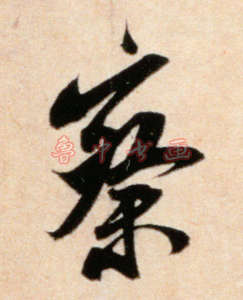 察
鲁中书画